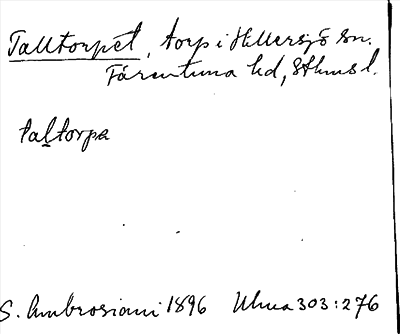 Talltorpet, torp i Hillersjö sn.
Färentuna hd, Sthms l.
taḻtorpa
S. Ambrosiani 1896 Uhua 303:276